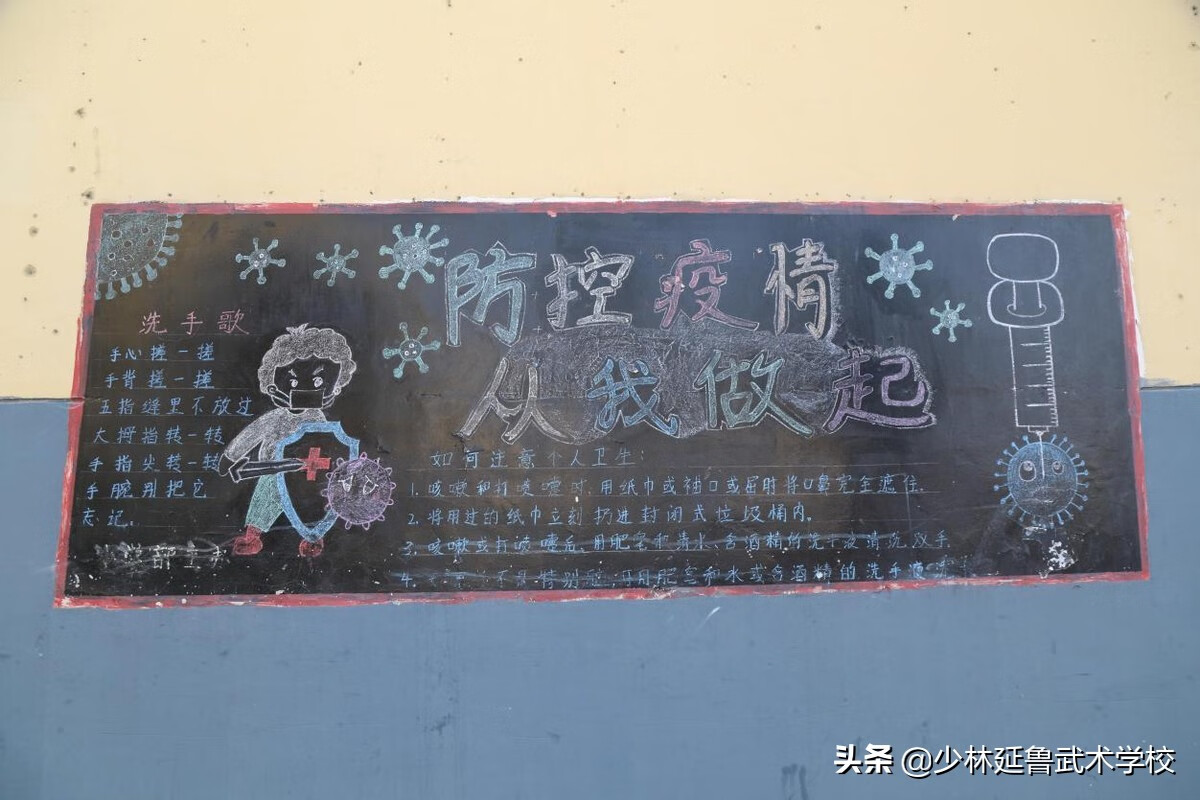 防控疫情
从我做起
洗手歌
手心搓一搓
手背搓一搓
五指缝里不放过
大拇指转一转
手指尖转一转
手腕别把它
忘记。
如何注意个人卫生:
1. 咳嗽和打喷嚏时,用纸巾或袖口或屈肘将口鼻完全遮住.
2. 将用过的纸巾立刻扔进封闭式垃圾桶内。
3. 咳嗽或打喷嚏后,用肥皂和清水、含酒精的洗手液清洗双手
4. 不是特别脏 可用肥皂和水或含酒精的洗手液
头条 @少林延鲁武术学校